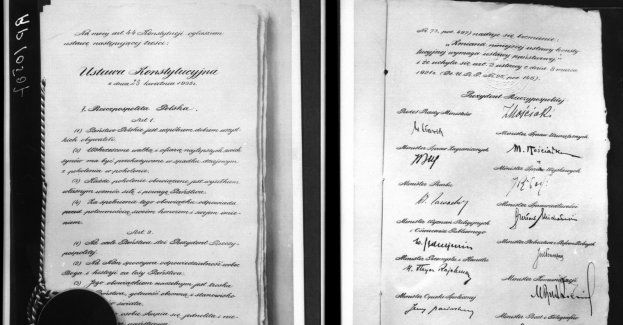 Na mocy art. 44 Konstytucji ogłaszam
ustawę następującej treści:
Ustawa Konstytucyjna
z dnia 23 kwietnia 1935 r.
I. Rzeczpospolita Polska.
Art. 1.
(1) Państwo Polskie jest wspólnem dobrem wszyst-
kich obywateli.
(2) Wskrzeszone walką i ofiarą najlepszych swoich
synów ma być przekazywane w spadku dziejowym
z pokolenia w pokolenie.
(3) Każde pokolenie obowiązane jest wysiłkiem
własnym wzmóc siłę i powagę Państwa.
(4) Za spełnienie tego obowiązku odpowiada
przed potomnością swoim honorem i swojem imie-
niem.
Art. 2.
(1) Na czele Państwa stoi Prezydent Rzeczy-
pospolitej.
(2) Na Nim spoczywa odpowiedzialność wobec
Boga i historji za losy Państwa.
(3) Jego obowiązkiem naczelnym jest troska
Państwa, gotowość obronną i stanowisko
świata.
osobie skupia się jednolita i nie-
państwowa.
Nr. 77, poz. 497) nadaje się brzmienie:
„Zmiana niniejszej ustawy konsty-
tucyjnej wymaga ustawy państwowej”
Prezydent Rzeczypospolitej
I Mościcki
Prezes Rady Ministrów
W Sławek
Minister Spraw Wewnętrznych
M. Kościałkowski
Minister Spraw Zagranicznych
Minister Spraw Wojskowych
Minister Skarbu
Minister Sprawiedliwości
Minister Wyznań Religijnych
i Oświecenia Publicznego
Minister Rolnictwa i Reform Rolnych
Minister Przemysłu i Handlu
H. Floyar Rajchman
Minister Komunikacji
Minister Opieki Społecznej
Minister Poczt i Telegrafów